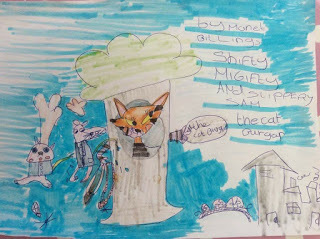 by Monet
BILLINGS
SHIFTY
MIGIFTEY
AND SLIPPERY
SAM
the cat
Gurgar
the
cat Gurgar